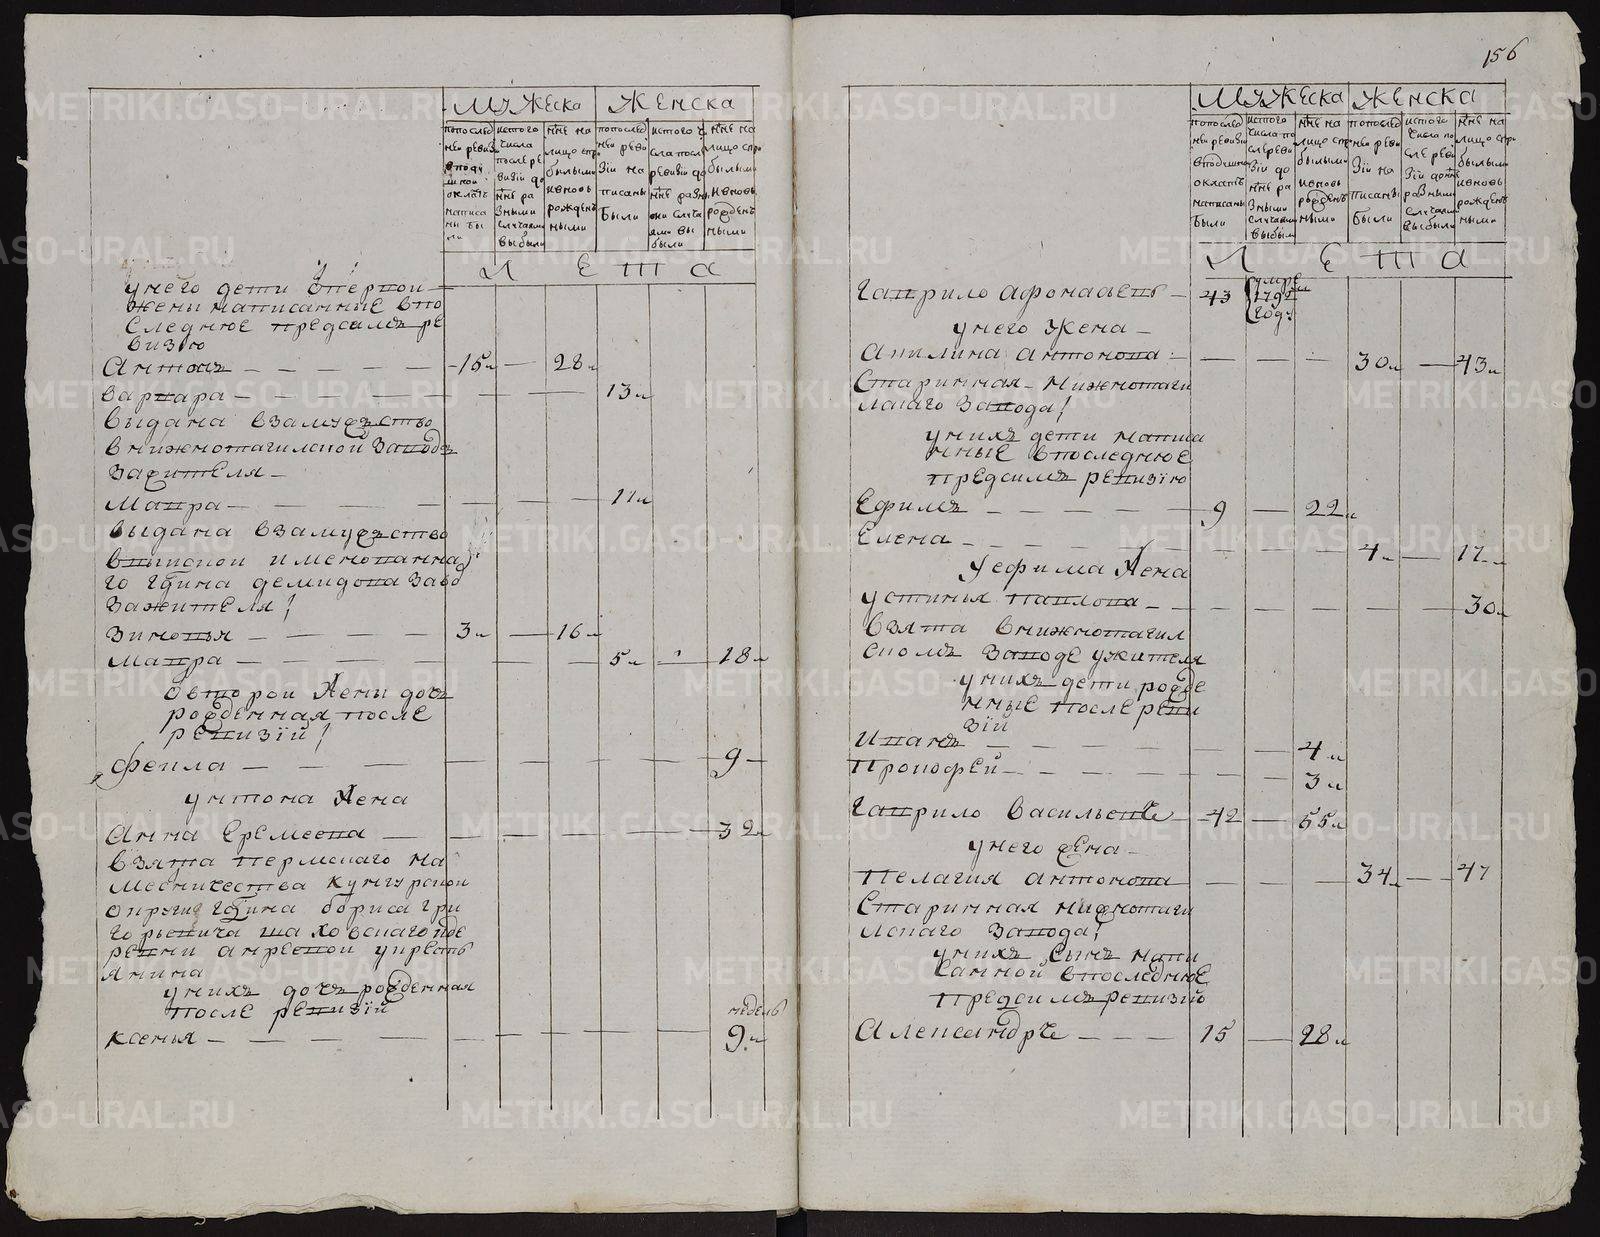 Мужеска Женска
попослед
ней ревиз
вподу
шной
окладъ
написа
ны бы
ли
истого
числа
после ре
визiи до
нне ра
зными
случаями
выбыли
нне на
лицо спри
былыми
ивновь
рожден
ными
попослед
ней реви
зiи на
писаны
были
истого ч
сла посл
ревизiи до
нне разн
ами случа
ями вы
были
нне на
лицо спри
былыми
ивновь
рожден
ными
Л е т а
унего дети отпервой
жены написанные впо
следнюю предсимъ ре
визiю
Антонъ 15 28
Варвара 13
выдана взамужство
внижнотагилской заводъ
зажителя
Мавра 11
выдана взамужство
выйской имянованна
го гдина демидова завод
зажителя
Зиновья 3 16
Мавра 5 18
овторой жены дочь
рожденная после
ревизiи
Фекла 9
Уантона жена
Анна Еремеева 32
взята пермскаго на
месничества кунгурской
округи гдина бориса гри
горьевича шаховскаго изде
ревни андреевой укресть
янина
уних дочь рожденная
после ревизiи
недель
Ксенья 9
156
Мужеска Женска
попослед
ней ревизiи
вподушной
окладъ
написаны
были
истого
числа по
сле реви
зiи до
нне ра
зными
случаями
выбыли
нне на
лицо спри
былыми
ивновь
рожден
ными
попослед
ней реви
зiи на
писаны
были
истого
числа по
сле реви
зiи до нне
разными
случаями
выбыли
нне на
лицо спри
былыми
ивновь
рожден
ными
Л е т а
Гаврило Афонасьевъ 43 умре 1792 годъ
унего жена
Акилина антонова 30 43
Старинная нижнотаги
лскаго завода
уних дети написа
нные впоследнюю
предсимъ ревизiю
Ефимъ 9 22
Елена 4 17
Уефима жена
устинья павлова 30
взята внижнотагил
скомъ заводе ужителя
унихъ дети рожде
нные после реви
зiи
Иванъ 4
Прокофей 3
Гаврило Васильевъ 42 55
унего жена
Пелагия антонова 34 47
Старинная нижнотаги
лскаго завода
унихъ сынъ напи
санной впоследнюю
предсимъ ревизiю
Александръ 15 28